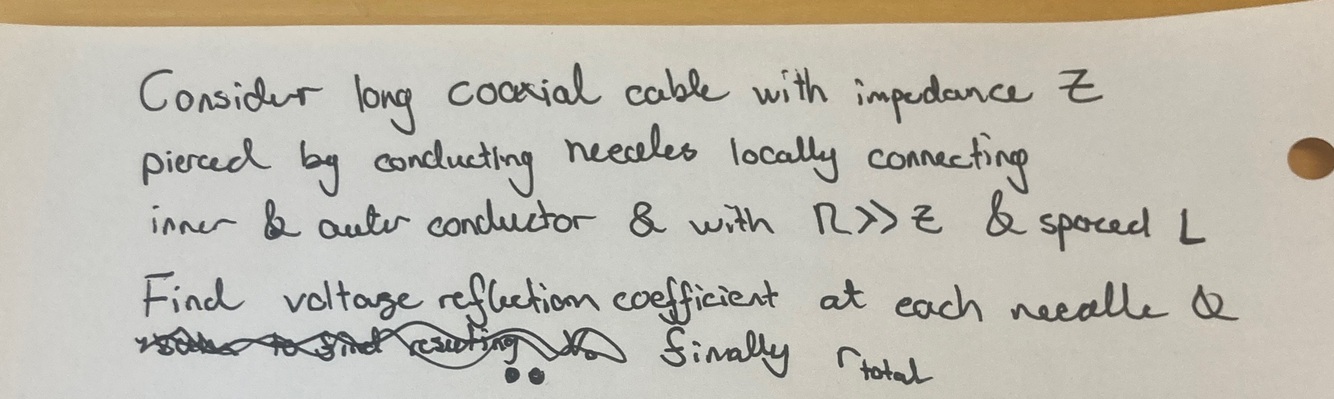 Consider long coaxial cable with impedance Z
pierced by conducting needles locally connecting
inner & outer conductor & with R>>Z & spaced L
Find voltage reflection coefficient at each needle &
finally r_total